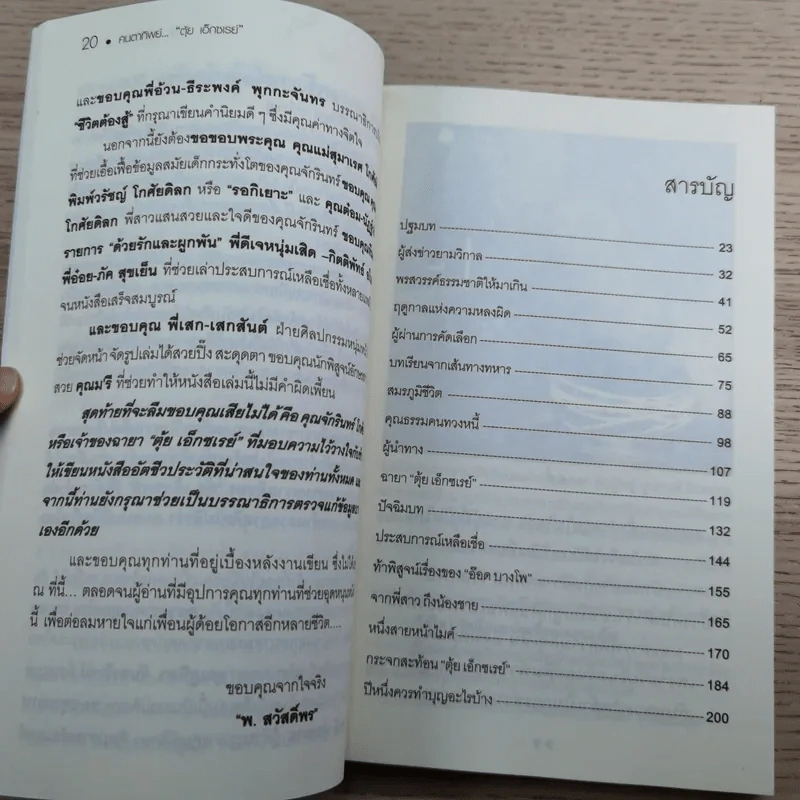 20 • คนตาทิพย์... "ตุ้ย เอ็กซเรย์"
และขอบคุณพี่อ้วน-ธีระพงค์ พุกกะจันทร บรรณาธิการ
"ชีวิตต้องสู้" ที่กรุณาเขียนคำนิยมดี ๆ ซึ่งมีคุณค่าทางจิตใจ
นอกจากนี้ยังต้องขอขอบพระคุณ คุณแม่สุมาเรศ
ที่ช่วยเอื้อเฟื้อข้อมูลสมัยเด็กกระทั่งโตของคุณจักรินทร์ ขอบคุณ
พิมพ์วรัชญ์ โกศัยดิลก หรือ "รอกิเยาะ" และ คุณต้อม-
โกศัยดิลก พี่สาวแสนสวยและใจดีของคุณจักรินทร์ ขอบคุณ
รายการ "ด้วยรักและผูกพัน" พี่ดีเจหนุ่มเสิด –กิตติพัทธ์
พี่อ๋อย-ภัค สุขเย็น ที่ช่วยเล่าประสบการณ์เหลือเชื่อทั้งหลาย
จนหนังสือเสร็จสมบูรณ์
และขอบคุณ พี่เสก-เสกสันต์ ฝ่ายศิลปกรรมหนุ่ม
ช่วยจัดหน้า จัดรูปเล่มได้สวยปิ๊ง สะดุดตา ขอบคุณนักพิสูจน์อักษร
สวย คุณมารี ที่ช่วยทำให้หนังสือเล่มนี้ไม่มีคำผิดเพี้ยน
สุดท้ายที่จะลืมขอบคุณเสียไม่ได้ คือ คุณจักรินทร์
หรือเจ้าของฉายา "ตุ้ย เอ็กซเรย์" ที่มอบความไว้วางใจ
ให้เขียนหนังสืออัตชีวประวัติที่น่าสนใจของท่านทั้งหมด
จากนี้ท่านยังกรุณาช่วยเป็นบรรณาธิการตรวจแก้ข้อมูล
เองอีกด้วย
และขอบคุณทุกท่านที่อยู่เบื้องหลังงานเขียน ซึ่งไม่ได้
ณ ที่นี้... ตลอดจนผู้อ่านที่มีอุปการคุณทุกท่านที่ช่วยอุดหนุน
นี้ เพื่อต่อลมหายใจแก่เพื่อนผู้ด้อยโอกาสอีกหลายชีวิต....
ขอบคุณจากใจจริง
"พ. สวัสดิ์พร"
สารบัญ
ปฐมบท 23
ผู้ส่งข่าวยามวิกาล 32
พรสวรรค์ธรรมชาติให้มาเกิน 41
ฤดูกาลแห่งความหลงผิด 52
ผู้ผ่านการคัดเลือก 65
บทเรียนจากเส้นทางทหาร 75
สมรภูมิชีวิต 88
คุณธรรมคนทวงหนี้ 98
ผู้นำทาง 107
ฉายา "ตุ้ย เอ็กซเรย์" 119
ปัจฉิมบท 132
ประสบการณ์เหลือเชื่อ 144
ท้าพิสูจน์เรื่องของ "อ๊อด บางโพ" 155
จากพี่สาว ถึงน้องชาย 165
หนึ่งสายหน้าไมค์ 170
กระจกสะท้อน "ตุ้ย เอ็กซเรย์" 184
ปีหนึ่งควรทำบุญอะไรบ้าง 200